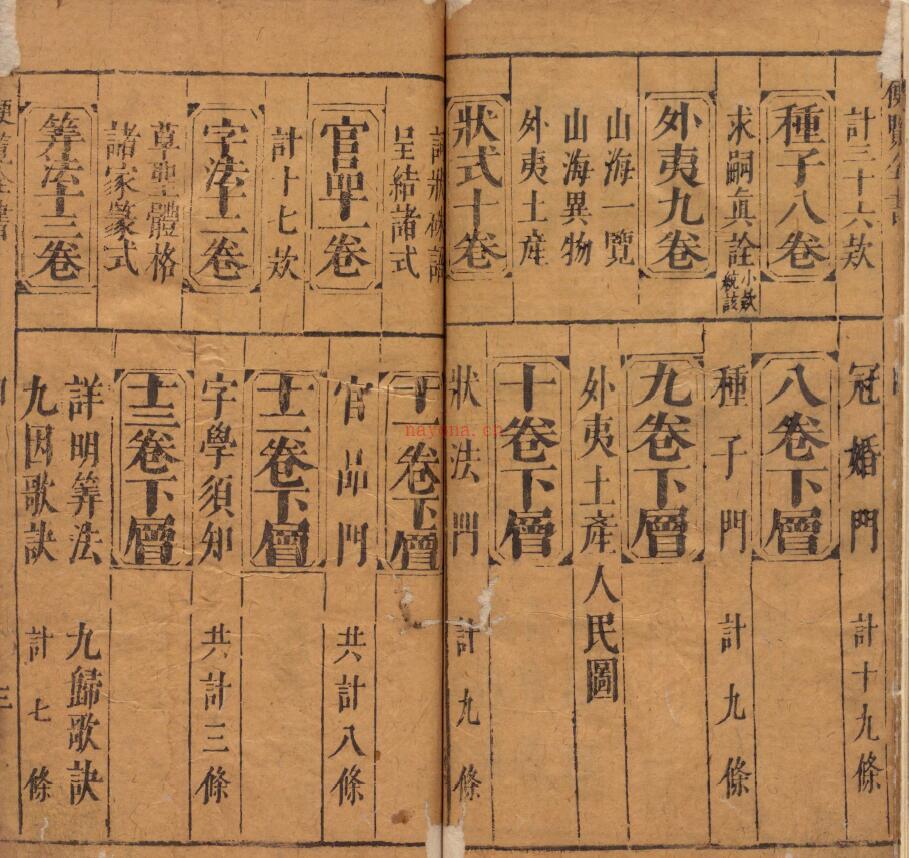 計三十六欵
種子八卷
求嗣眞詮 小欵統該
外夷九卷
山海一覽
山海異物
外夷土產
狀式十卷
呈結諸式
官品十一卷
計十七欵
字法十二卷
草聖體格
諸家篆式
筭法十三卷
冠婚門 計十九條
八卷下層
種子門 計九條
九卷下層
外夷土產人民圖
十卷下層
狀法門 計九條
十一卷下層
官品門 共計八條
十二卷下層
字學須知 共計三條
十三卷下層
詳明筭法 九歸歌訣
九因歌訣 計七條
三
nayona.cn